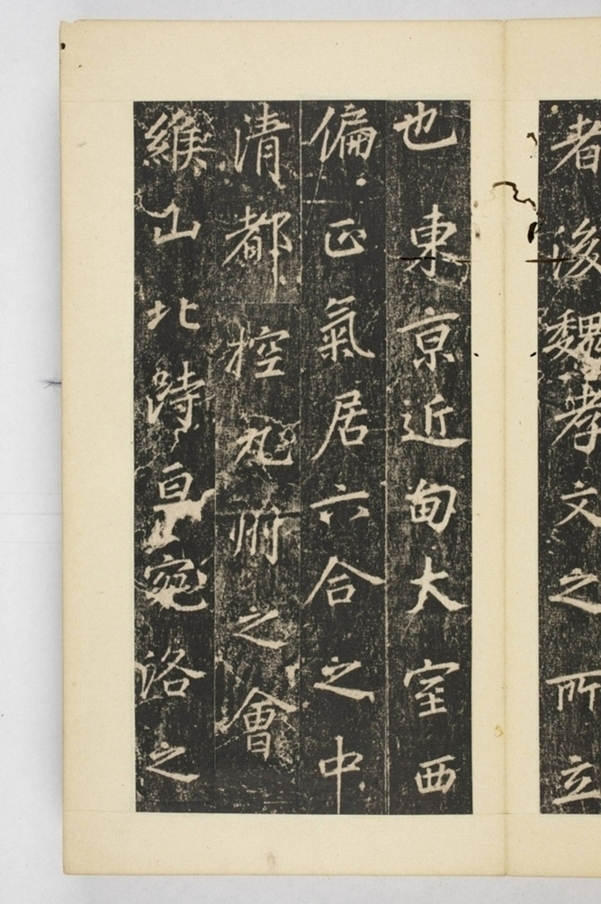 者後魏孝文之所立
也東京近甸大室西
偏正氣居六合之中
清都控九州之會
緱山北跱亘宛洛之